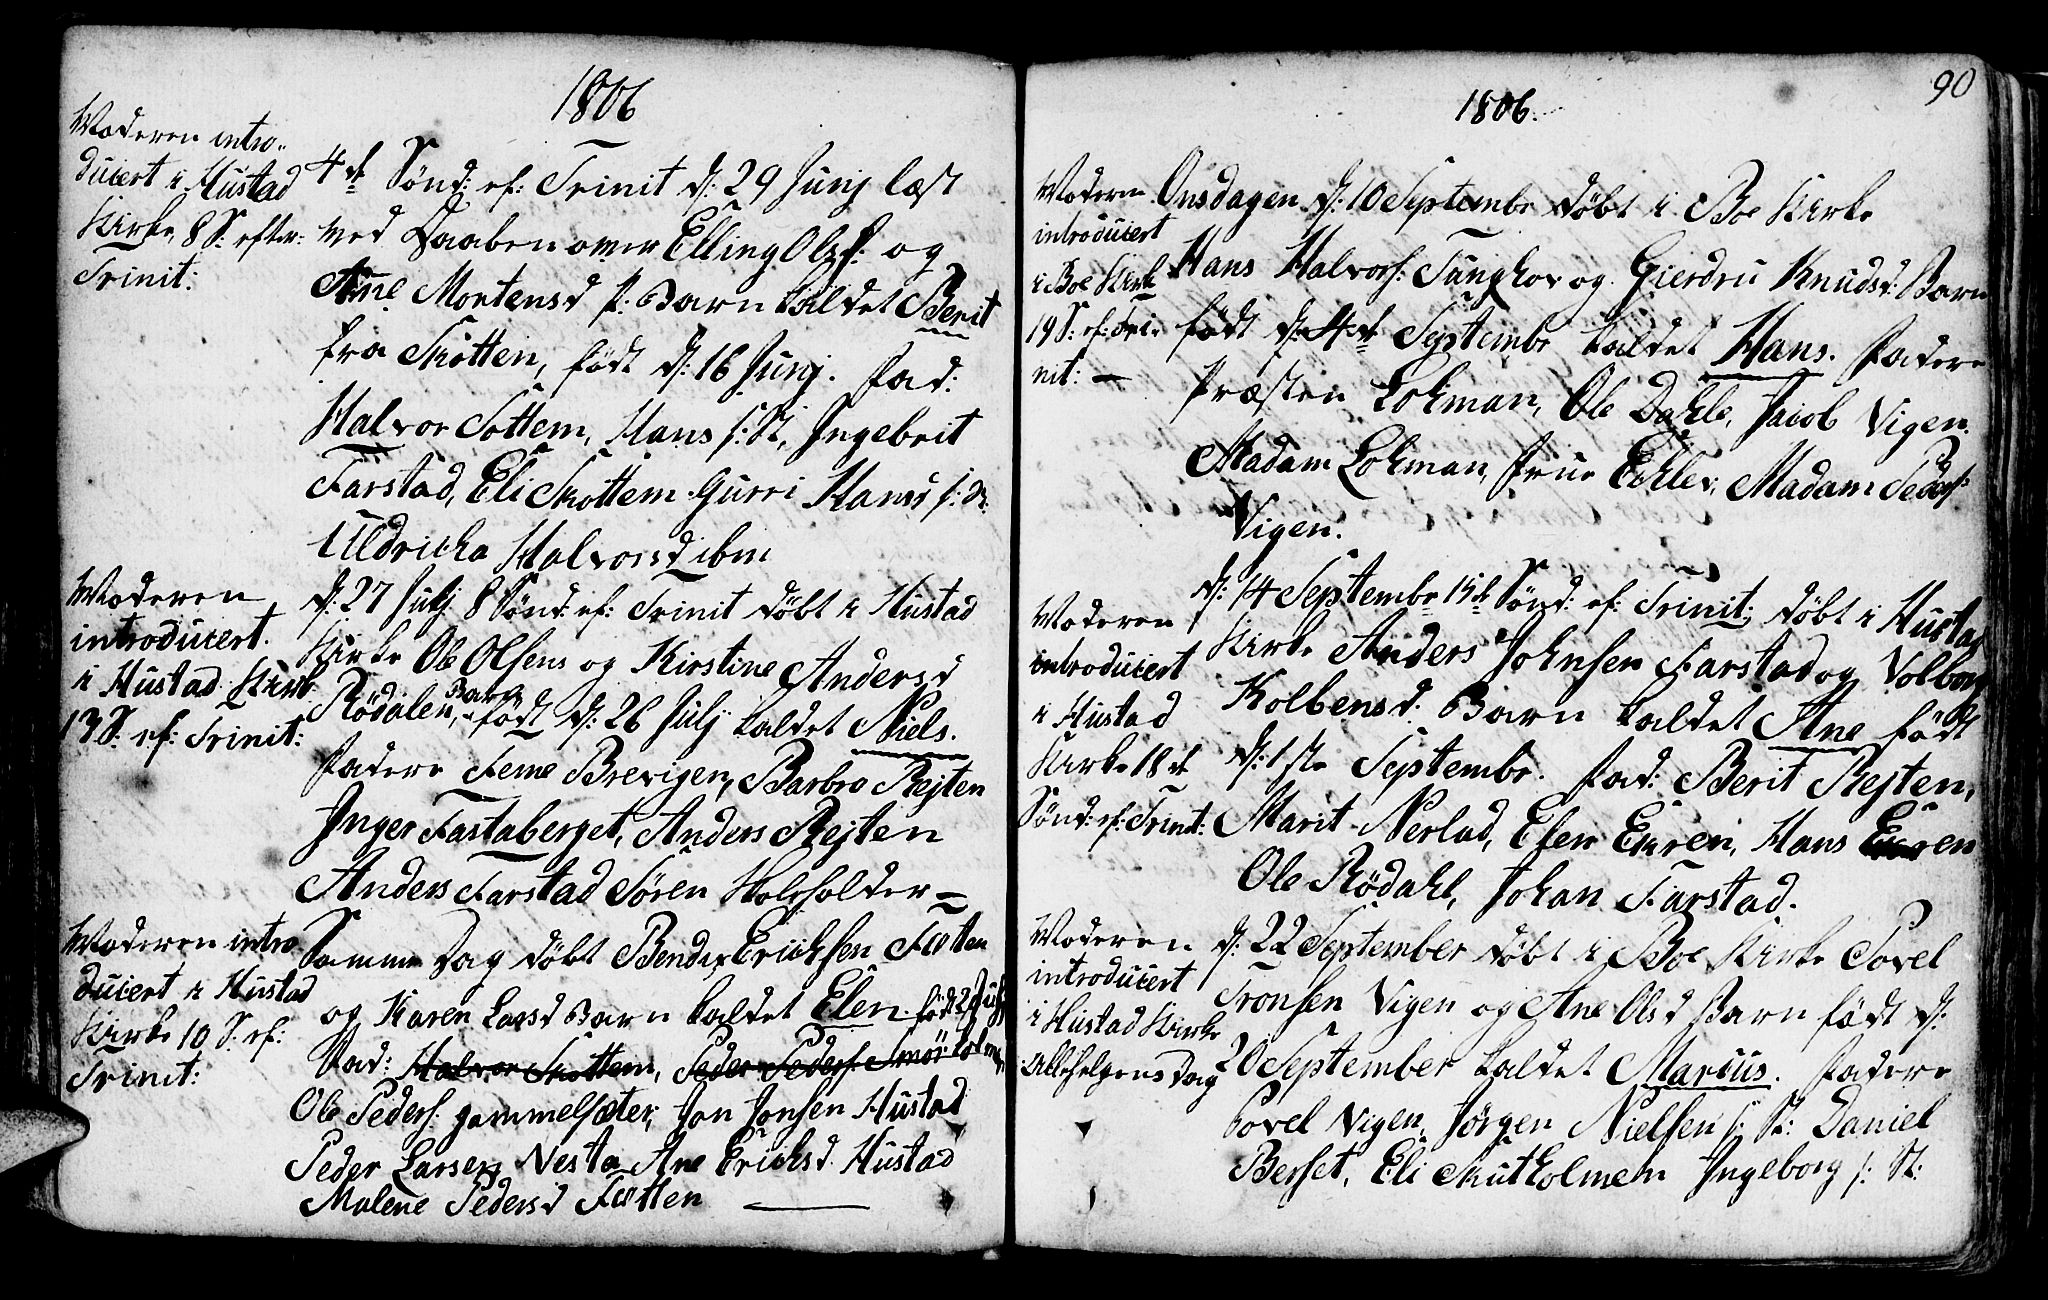 1806
Moderen intro-
ducert i Hustad
Kirke, 8 S: efter
Trinit:
4de Sønd: ef: Trinit d: 29 Junj læst
ved Daaben over Elling Ols: og
Ane Mortensd s: Barn kaldet Berit
fra Skotten, født d: 16 Junj. Fad:
Halvor Sottem, Hans s: St, Ingebrit
Farstad, Eli Skottem Gurri Hansd s: St:
Uldricha Halvorsd ibm
Moderen
introducert
i Hustad Kirk
13 S: ef: Trinit:
d: 27 Julj 8 Sønd: ef: Trinit døbt i Hustad
Kirke Ole Olsens og Kirstine Andersd
Rödalen, Barn født d: 26 Julj kaldet Niels.
Fadere Feme Brevigen, Barbro Rejten
Inger Fastaberget, Anders Rejten
Anders Farstad Sören
Moderen intro
ducert i Hustad
Kirke 10 S: ef:
Trinit:
Samme Dag døbt Bendix Erichsen Fætten
og Karen Larsd Barn kaldet Elen født 2 Julj
Fad: Halvor Skottem, Peder Peders:
Ole Peders: gammelsæter, Jon Jonsen Hustad
Peder Larsen Nesta Ane Erichsd Hustad
Malene Pedersd Fætten
90
1806.
Moderen
introducert
i Boe Kirk
19 S: ef: Tri-
nit:
Onsdagen d: 10 Septembr døbt i Boe Kirke
Hans Halvors: Tunghov og Gierdru Knudsd: Barn
født d: 4de Septembr kaldet Hans. Fadere
Præsten Lohman, Ole Dahle, Jacob Vigen.
Madam Lohman, Frue Madam Peders:
Vigen.
Moderen
introducert
i Hustad
Kirke 18de
Sønd: ef: Trinit:
d: 14 September 15de Sønd: ef: Trinit: døbt i Hustad
Kirke Anders Johnsen Farstad og Volborg
Kolbensd: Barn kaldet Ane født
d: 1ste Septembr. Fad: Berit Rejten,
Marit Nerlad, Elen Enren, Hans Enren
Ole Rödahl, Johan Farstad.
Moderen
introducert
i Hustad Kirke
Allehelgens Dag
d: 22 September døbt i Boe Kirke Povel
Tronsen Vigen og Ane Olsd Barn født d:
20 September kaldet Marcus. Fadere
Povel Vigen, Jørgen Nielsen s: St: Daniel
Berset, Eli Skutholmen Ingeborg s: St: